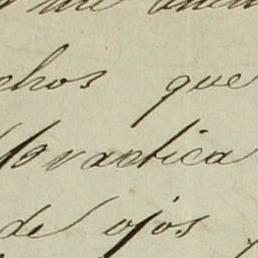 chos que
practica
de ojos